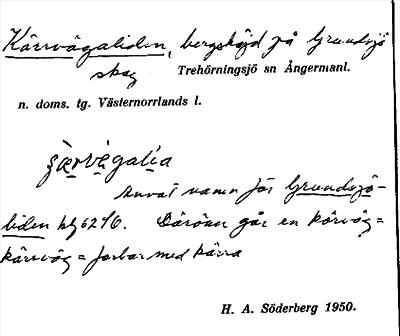 Kärrvägaliden, bergshöjd på Grundsjö
skog Trehörningsjö sn Ångermanl.
n. doms. tg. Västernorrlands l.
ʂærvègalia
Annat namn för Grundsjö-
liden bg 6246. Däröver går en körväg =
kärrväg = farbar med kärra
H. A. Söderberg 1950.